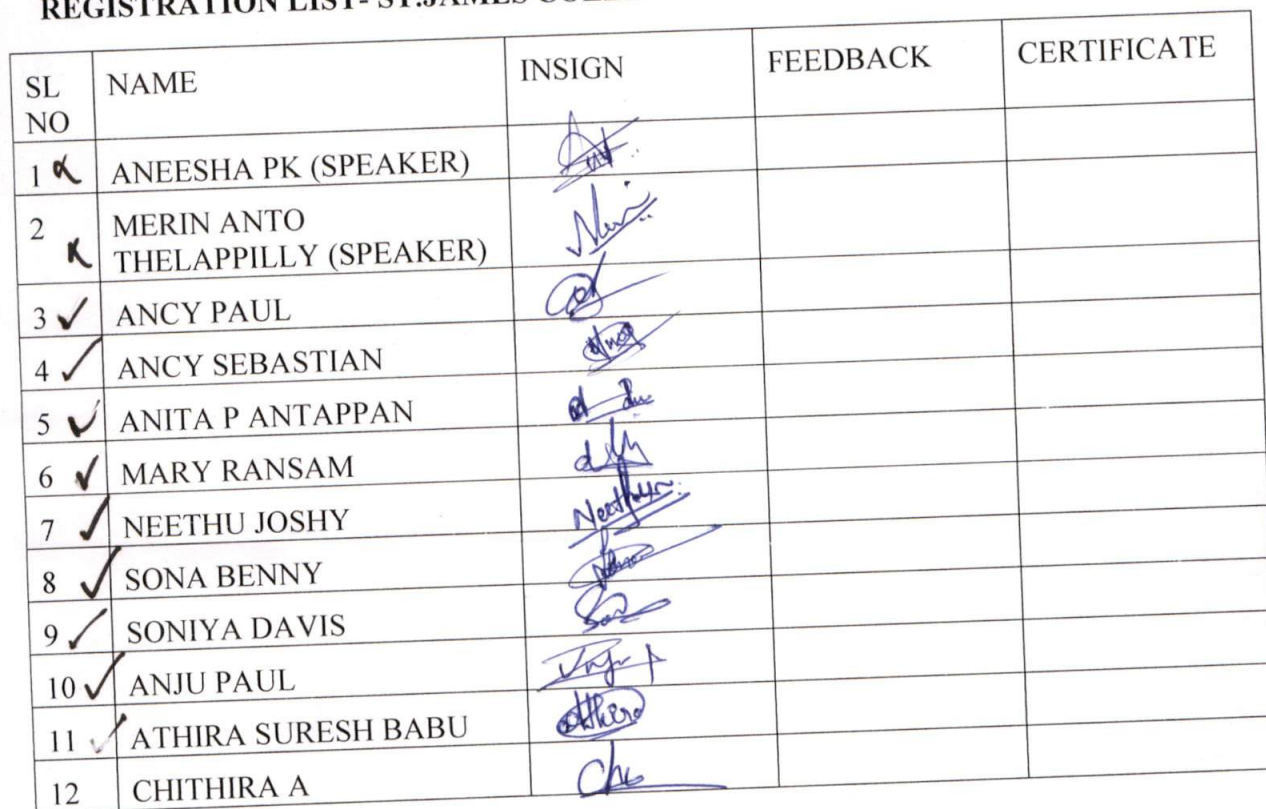 REGISTRATION LIST- ST.JAMES
SL NO NAME INSIGN FEEDBACK CERTIFICATE
1 ANEESHA PK (SPEAKER)
2 MERIN ANTO
THELAPPILLY (SPEAKER)
3 ✓ ANCY PAUL
4 ✓ ANCY SEBASTIAN
5 ✓ ANITA P ANTAPPAN
6 ✓ MARY RANSAM
7 ✓ NEETHU JOSHY Neethu
8 ✓ SONA BENNY
9 ✓ SONIYA DAVIS
10 ✓ ANJU PAUL
11 ✓ ATHIRA SURESH BABU Athira
12 CHITHIRA A